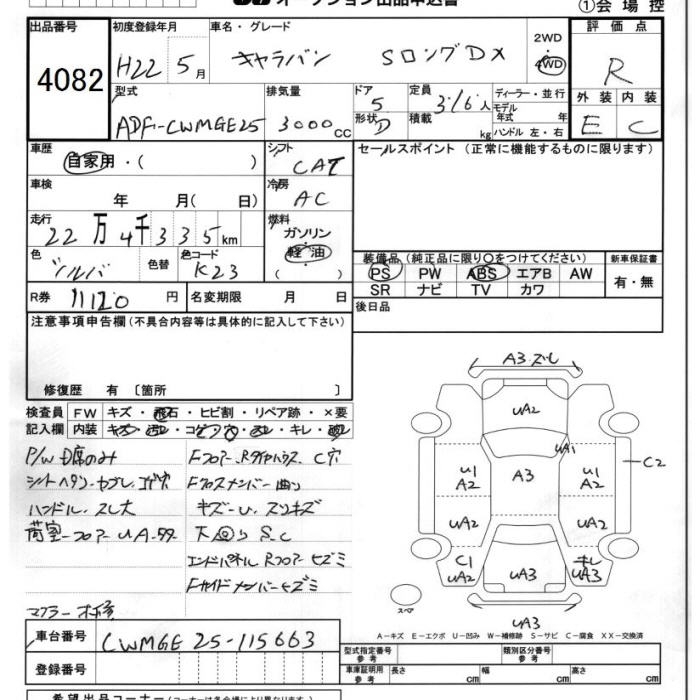 オークション出品申込書
①会場控
出品番号
4082
初度登録年月
H22 5月
車名・グレード
キャラバン SロングDX
2WD
4WD
評価点
R
外装 内装
E C
型式
ADF-CWMGE25
排気量
3000cc
ドア
5
形状
D
定員
3/6人
積載
kg
ディーラー・並行
モデル
年式 年
ハンドル 左・右
車歴
自家用・( )
シフト
CAT
車検
年 月( 日)
冷房
AC
走行
22万4千335km
燃料
ガソリン
軽油
( )
色
シルバ
色替
色コード
K23
R券
11120円
名変期限 月 日
セールスポイント(正常に機能するものに限ります)
装備品(純正品に限り○をつけてください)
PS PW ABS エアB AW
SR ナビ TV カワ
新車保証書
有・無
後日品
注意事項申告欄(不具合内容等は具体的に記入して下さい)
修復歴 有〔箇所 〕
検査員
記入欄
FW キズ・飛石・ヒビ割・リペア跡・×要
内装
P/W D席のみ
ハンドル、スレ大
荷室フロアーUA
Fフロアー、Rタイヤハウス C穴
Fクロスメンバー曲り
キズーU、スリキズ
下回り S.C
エンドパネル Rフロアー ヒズミ
Fサイドメンバーヒズミ
マフラー
A3 ズレ
UA2
UA1
A3
U1
A2
UA2
C1
UA2
U1
A2
UA2
キレ
UA3
C2
UA3
UA3
スペア
A-キズ E-エクボ U-凹み W-補修跡 S-サビ C-腐食 XX-交換済
車台番号
CWMGE25-115663
登録番号
型式指定番号
参考
類別区分番号
参考
車庫証明用
参考
長さ cm
幅 cm
高さ cm
希望出品コーナー